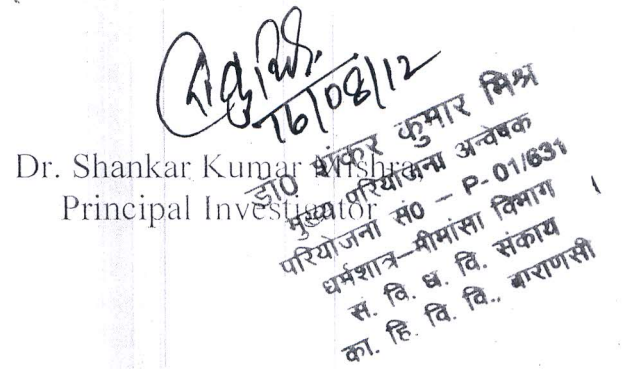 16/08/12
Dr. Shankar Kumar Mishra
Principal Investigator
डा0 शंकर कुमार मिश्र
मुख्य परियोजना अन्वेषक
परियोजना सं0 – P- 01/631
धर्मशात्र–मीमांसा विभाग
सं. वि. ध. वि. संकाय
का. हि. वि. वि., वाराणसी